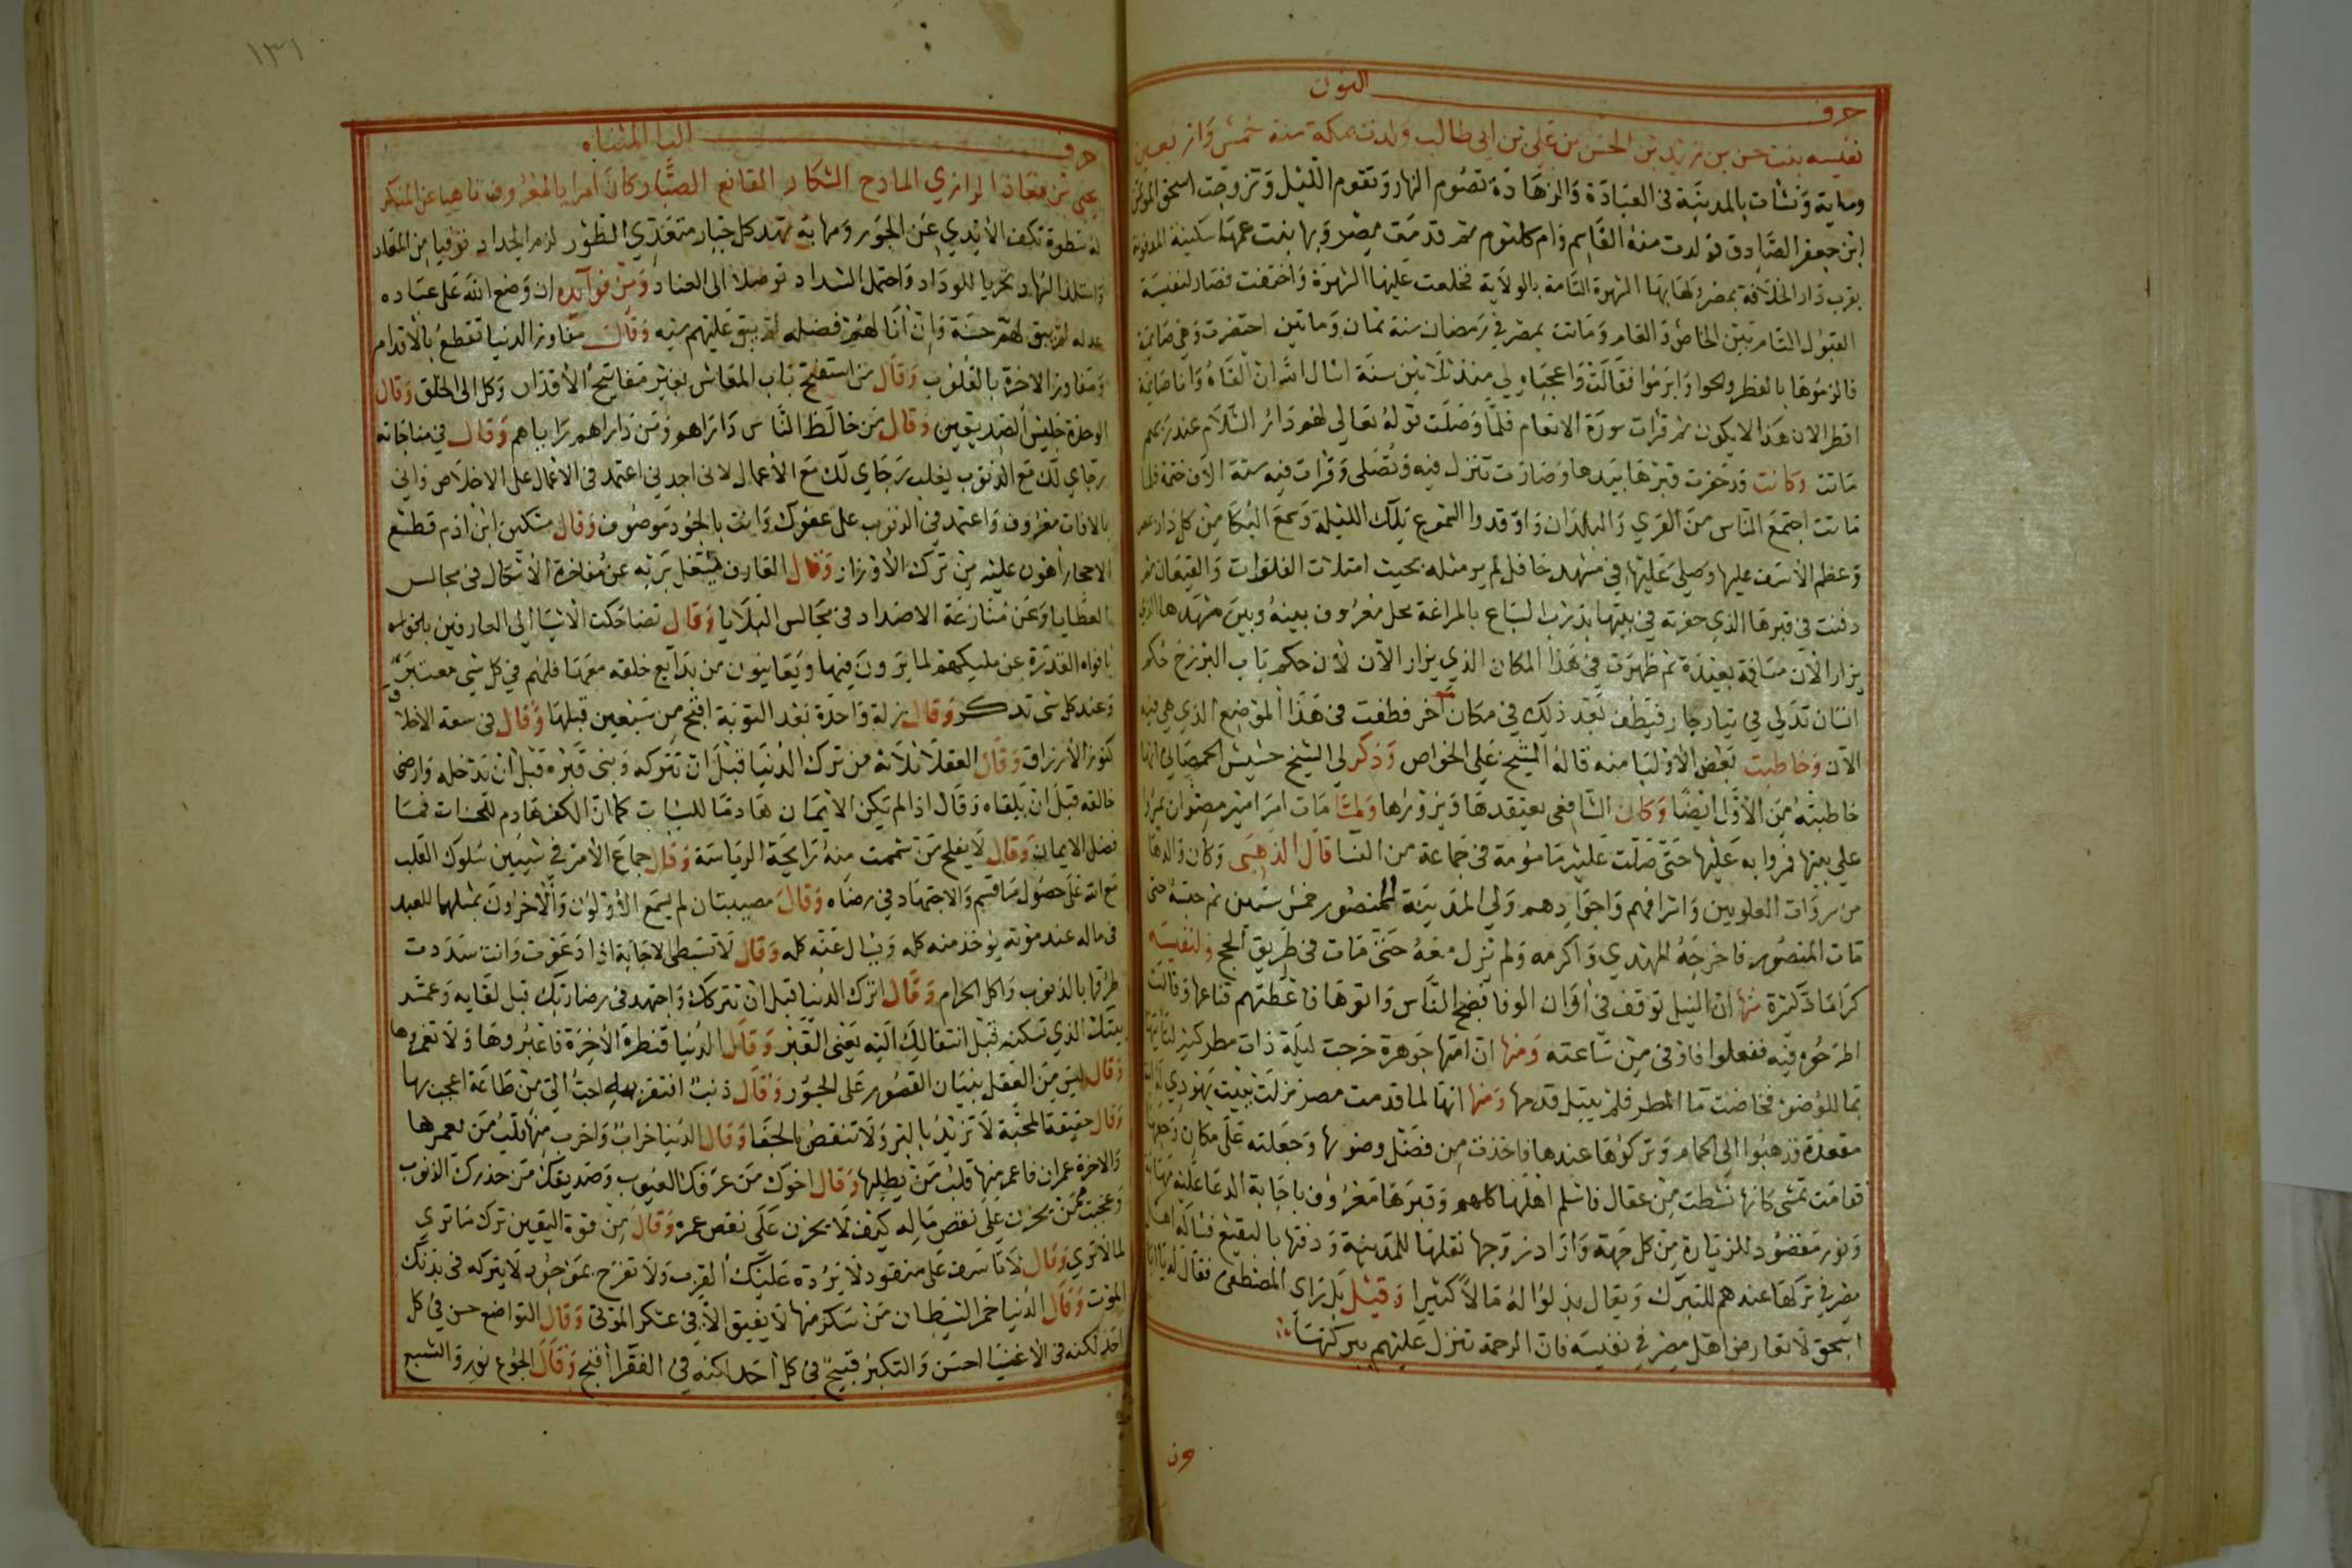 حرف النون
نفيسه بنت حسن بن زيد بن الحسن بن علي بن ابي طالب ولدت بمكة سنة خمس واربعين
وماية ونشات بالمدينة فى العبادة والزهادة تصوم النهار وتقوم الليل وتزوجت اسحق المؤتمن
ابن جعفر الصادق فولدت منه القاسم وام كلثوم ثم قدمت مصر وبها بنت عمها سكينة المدفونة
بقرب دار الخلافة بمصر ولها بها الشهرة التامة بالولاية فخلعت عليها الشهرة واختفت فصار لنفيسة
القبول التام بين الخاص والعام وماتت بمصر في رمضان سنة ثمان وماتين احتضرت وهي صايمة
فالزموها بالفطر والحوا وابرموا فقالت واعجباه لي منذ ثلاثين سنة اسال الله ان القاه وانا صايمة
افطر الان هذا لا يكون ثم قرات سورة الانعام فلما وصلت قوله تعالى لهم دار السلام عند ربهم
ماتت وكانت قد حفرت قبرها بيدها وصارت تنزل فيه وتصلى وقرات فيه ستة الاف ختمة فلما
ماتت اجتمع الناس من القري والبلدان واوقدوا الشموع تلك الليلة وسمع البكا من كل دار بمصر
وعظم الاسف عليها وصلي عليها في مشهد حافل لم ير مثله بحيث امتلات الفلوات والقيعان ثم
دفنت فى قبرها الذي حفرته في بيتها بدرب السباع بالمراغة محل معروف بينه وبين مشهدها الذي
يزار الان مسافة بعيدة ثم ظهرت في هذا المكان الذي يزار الان لان حكم باب البرزخ حكم
انسان تدلي في تيار جار فيطف بعد ذلك في مكان آخر فطفت فى هذا الموضع الذي هي فيه
الآن وخاطبت بعض الاوليا منه قاله الشيخ علي الخواص وذكر لي الشيخ حشيش الحمصاني انها
خاطبته من الاول ايضا وكان الشافعى يعتقدها ويزورها ولما مات امر امير مصر ان يمروا
على بيتها فمروا به عليها حتى صلت عليه مامومة فى جماعة من النسا قال الذهبى وكان والدها
من سروات العلويين واشرافهم واجوادهم ولي المدينة للمنصور خمس سنين ثم حبسه حتى
مات المنصور فاخرجه المهدي واكرمه ولم يزل معه حتى مات فى طريق الحج ولنفيسه
كرامات كثيرة منها ان النيل توقف فى اوان الوفا فضج الناس واتوها فاعطتهم قناعها وقالت
اطرحوه فيه ففعلوا فاوفى من ساعته ومنها ان امتها جوهرة خرجت ليلة ذات مطر كثير لتاتيها
بما للوضوء فخاضت ما المطر فلم يبتل قدمها ومنها انها لما قدمت مصر نزلت ببيت يهودي له ابنة
مقعدة فذهبوا الى الحمام وتركوها عندها فاخذت من فضل وضوها وجعلته على مكان وجعها
فقامت تمشى كانها نشطت من عقال فاسلم اهلها كلهم وقبرها معروف باجابة الدعا عليه مهابة
ونور مقصود للزيارة من كل جهة واراد زوجها نقلها للمدينة ودفنها بالبقيع فساله اهل
مصر في تركها عندهم للتبرك ويقال بذلوا له مالا كثيرا وقيل بل راي المصطفى فقال له يا ابا
اسحق لا تعارض اهل مصر في نفيسه فان الرحمة تنزل عليهم ببركتها
١٣١
حرف اليا المثناه
يحيى بن معاذ الرازي المادح الشكار القانع الصبار كان آمرا بالمعروف ناهيا عن المنكر
له سطوة تكف الايدي عن الجور ومهابة تهد كل جبار متعدي الطور لزم الحداد توقيا من المعاد
واستلذ السهاد تحريا للوداد واحتمل الشداد توصلا الى العناد ومن فوآيده ان وضع الله على عباده
عدله لم يبق لهم حسنة وان انا لهم فضله لم يبق عليهم سيه وقال مفاوز الدنيا تقطع بالاقدام
ومفاوز الاخرة بالقلوب وقال من استفتح باب المعاش بغير مفاتيح الاقدار وكل الى الخلق وقال
الوحدة جليس الصديقين وقال من خالط الناس داراهم ومن داراهم راياهم وقال في مناجاته
رجاي لك مع الذنوب يغلب رجاي لك مع الاعمال لانى اجدني اعتمد فى الاعمال على الاخلاص وانى
بالافات معروف واعتمد في الذنوب على عفوك وانت بالجود موصوف وقال مسكين ابن ادم قطع
الاحجار أهون عليه من ترك الاوزار وقال العارف يشتغل بربه عن مفاخرة الاشكال فى مجالس
العطايا وعن منازعة الاضداد فى مجالس البلايا وقال تضاحكت الاشيا الى العارفين بلخواه
بافواه القدرة عن مليكهم لما يرون فيها ويعاينون من بدايع خلقه معها فلهم في كل شي معتبر
وعند كل شى تذكر وقال زلة واحدة بعد التوبة اقبح من سبعين قبلها وقال فى سعة الاخلاق
كنوز الارزاق وقال العقلا ثلاثة من ترك الدنيا قبل ان تتركه وبنى قبره قبل ان يدخله وارضى
خالقه قبل ان يلقاه وقال اذا لم يكن الايمان هادما للسيات كما ان الكفر هادم للحسنات فما
فضل الايمان وقال لا يفلح من شممت منه رايحة الرياسة وقال جماع الامر في شيين سلوك القلب
مع الله على حصول ما قسم والاجتهاد في رضاه وقال مصيبتان لم يسمع الاولون والاخرون بمثلهما للعبد
فى ماله عند موته يوخذ منه كله ويسال عنه كله وقال لا تستبطى الاجابة اذا دعوت وانت سددت
طرقها بالذنوب واكل الحرام وقال اترك الدنيا قبل ان تتركك واجتهد فى رضا ربك قبل لقايه وعمر
بيتك الذي تسكنه قبل انتقالك اليه يعنى القبر وقال الدنيا قنطرة الاخرة فاعبروها ولا تعمروها
وقال ليس من العقل بنيان القصور على الجسور وقال ذنب افتقر به اليه احب الي من طاعة اعجب بها
وقال حقيقة المحبة لا تزيد بالبر ولا تنقص بالجفا وقال الدنيا خراب واخرب منها قلب من يعمرها
والاخرة عمران فاعمر منها قلب من يطلبها وقال اخوك من عرفك العيوب وصديقك من حذرك الذنوب
وعجبت ممن يحزن على نقص ماله كيف لا يحزن على نقص عمره وقال من قوة اليقين ترك ما تري
لما لا تري وقال لا تاسف على مفقود لا يرده عليك القرب ولا تفرح بموجود لا يتركه فى يدك
الموت وقال الدنيا خمر الشيطان من سكر منها لا يفيق الا فى عسكر الموتى وقال التواضع حسن في كل
احد لكنه فى الاغنيا احسن والتكبر قبيح في كل احد لكنه في الفقرا اقبح وقال الجوع نور والشبع